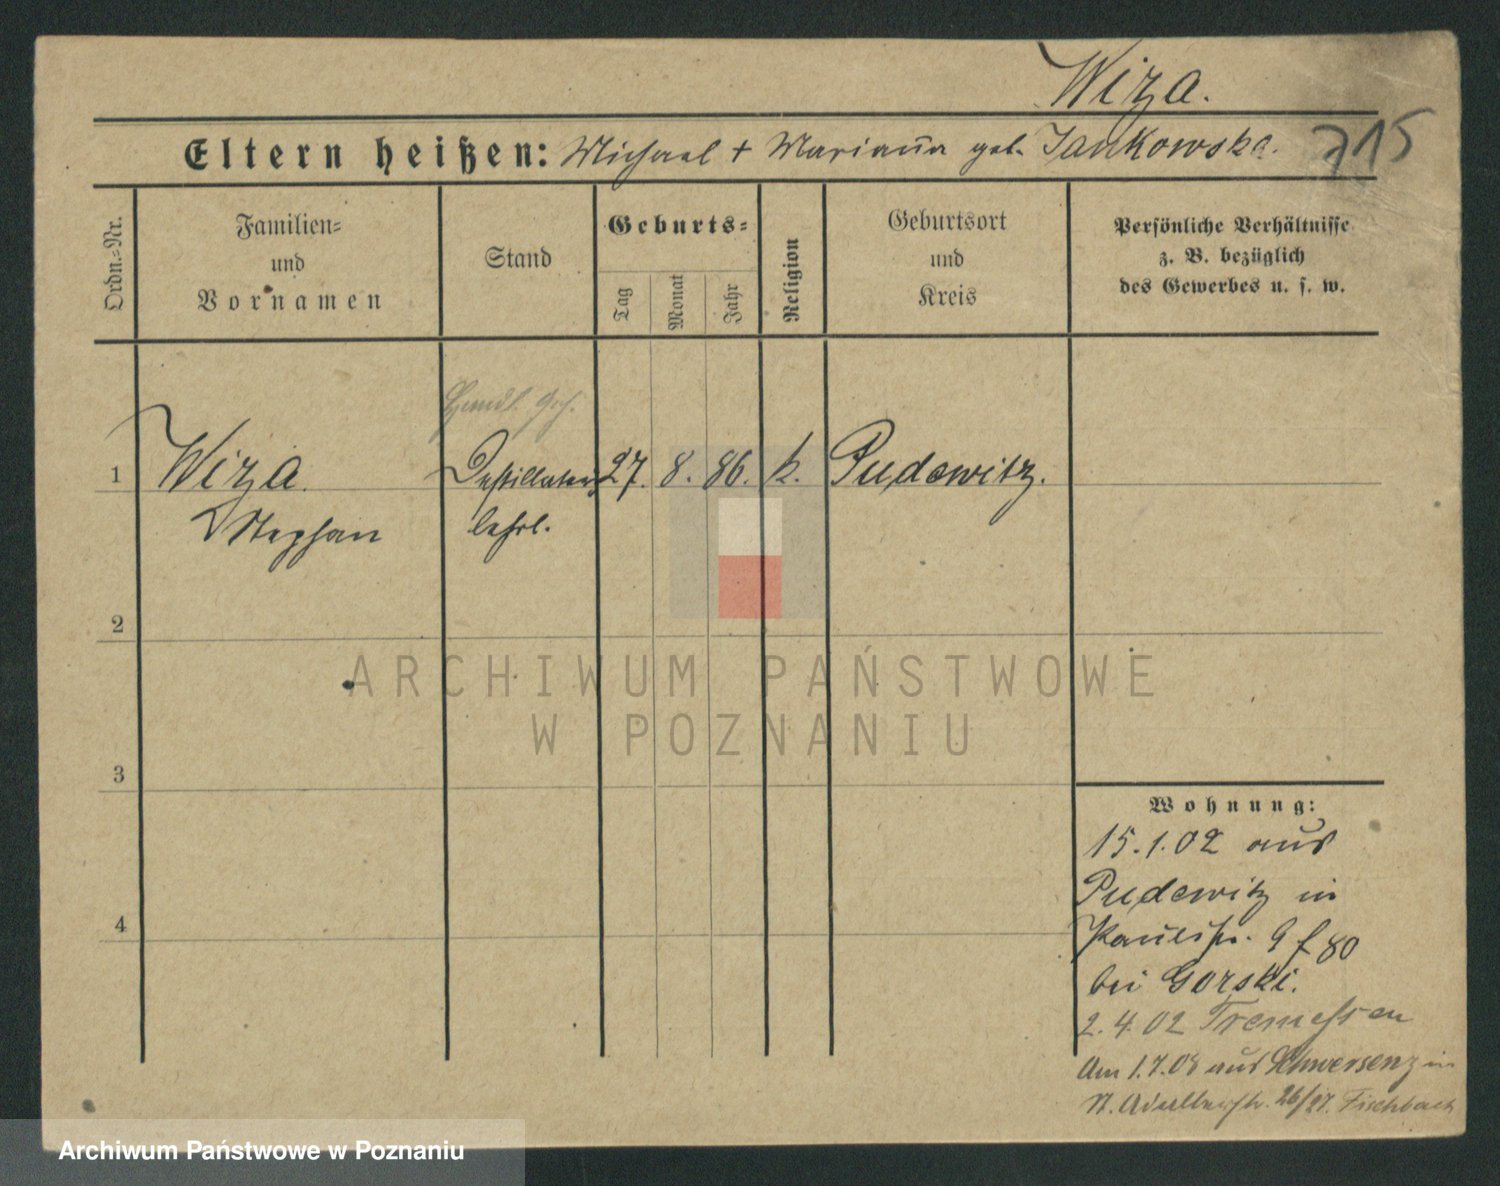 Wiza.
Eltern heißen: Michael + Mariaña geb. Jankowska.
715
Ordn.-Nr.
Familien-
und
Vornamen
Stand
Geburts-
Tag
Monat
Jahr
Religion
Geburtsort
und
Kreis
Persönliche Verhältnisse
z. B. bezüglich
des Gewerbes u. s. w.
Handl. Geh.
1 Wiza Destillateur 27. 8. 86. k. Pudewitz.
Stephan lehrl.
2
ARCHIWUM PAŃSTWOWE
W POZNANIU
3
Wohnung:
15.1.02 aus
Pudewitz in
Paulistr. 9 f 80
bei Gorski.
4
2.4.02 Tremessen
Am 1.7.08 aus Schwersenz in
St. Adalbertstr. 26/27. Fischbach
Archiwum Państwowe w Poznaniu